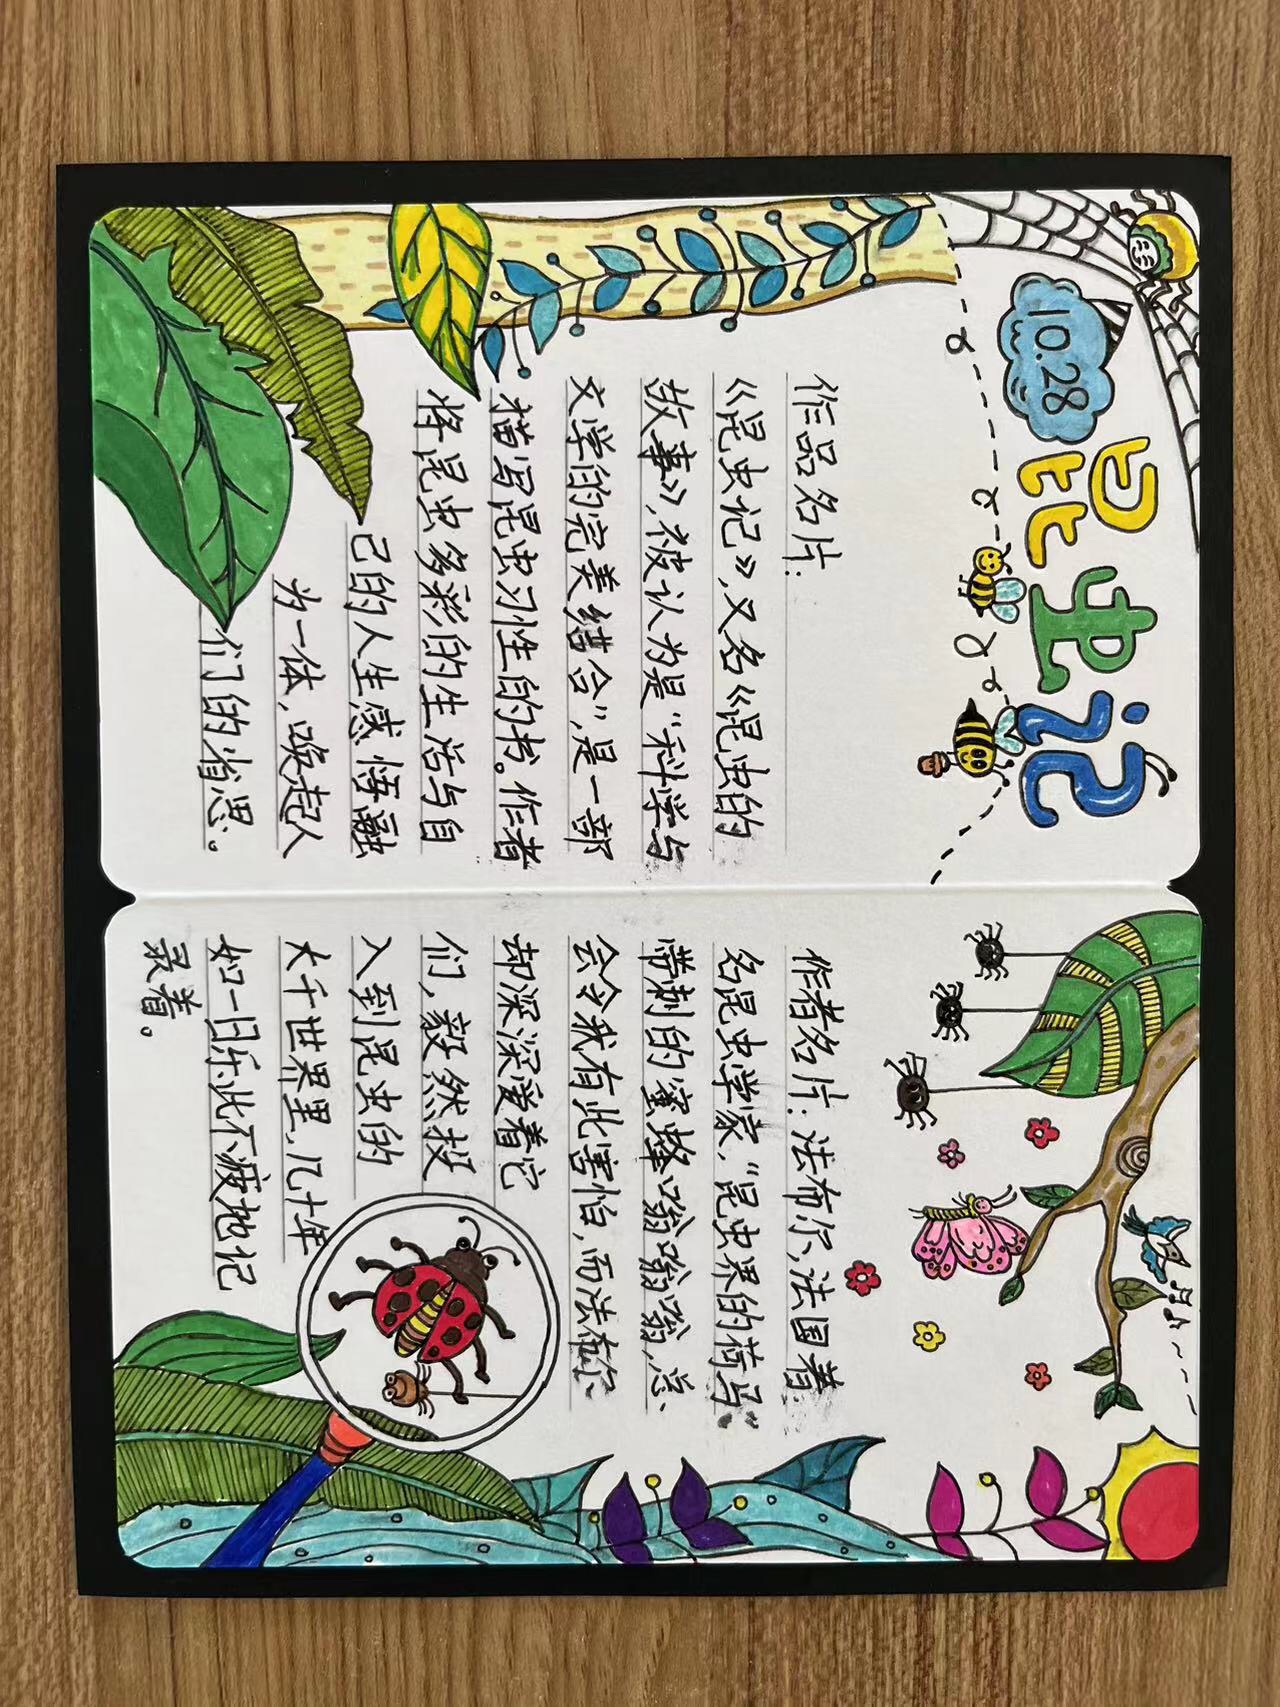 10.28
昆虫记
作品名片:
《昆虫记》,又名《昆虫的
故事》,被认为是“科学与
文学的完美结合”,是一部
描写昆虫习性的书。作者
将昆虫多彩的生活与自
己的人生感悟融
为一体,唤起人
们的省思。
作者名片:法布尔,法国著
名昆虫学家,“昆虫界的荷马”
带刺的蜜蜂嗡嗡嗡,总
会令我有此害怕,而法布尔
却深深爱着它
们,毅然投
入到昆虫的
大千世界里,几十年
如一日乐此不疲地记
录着。